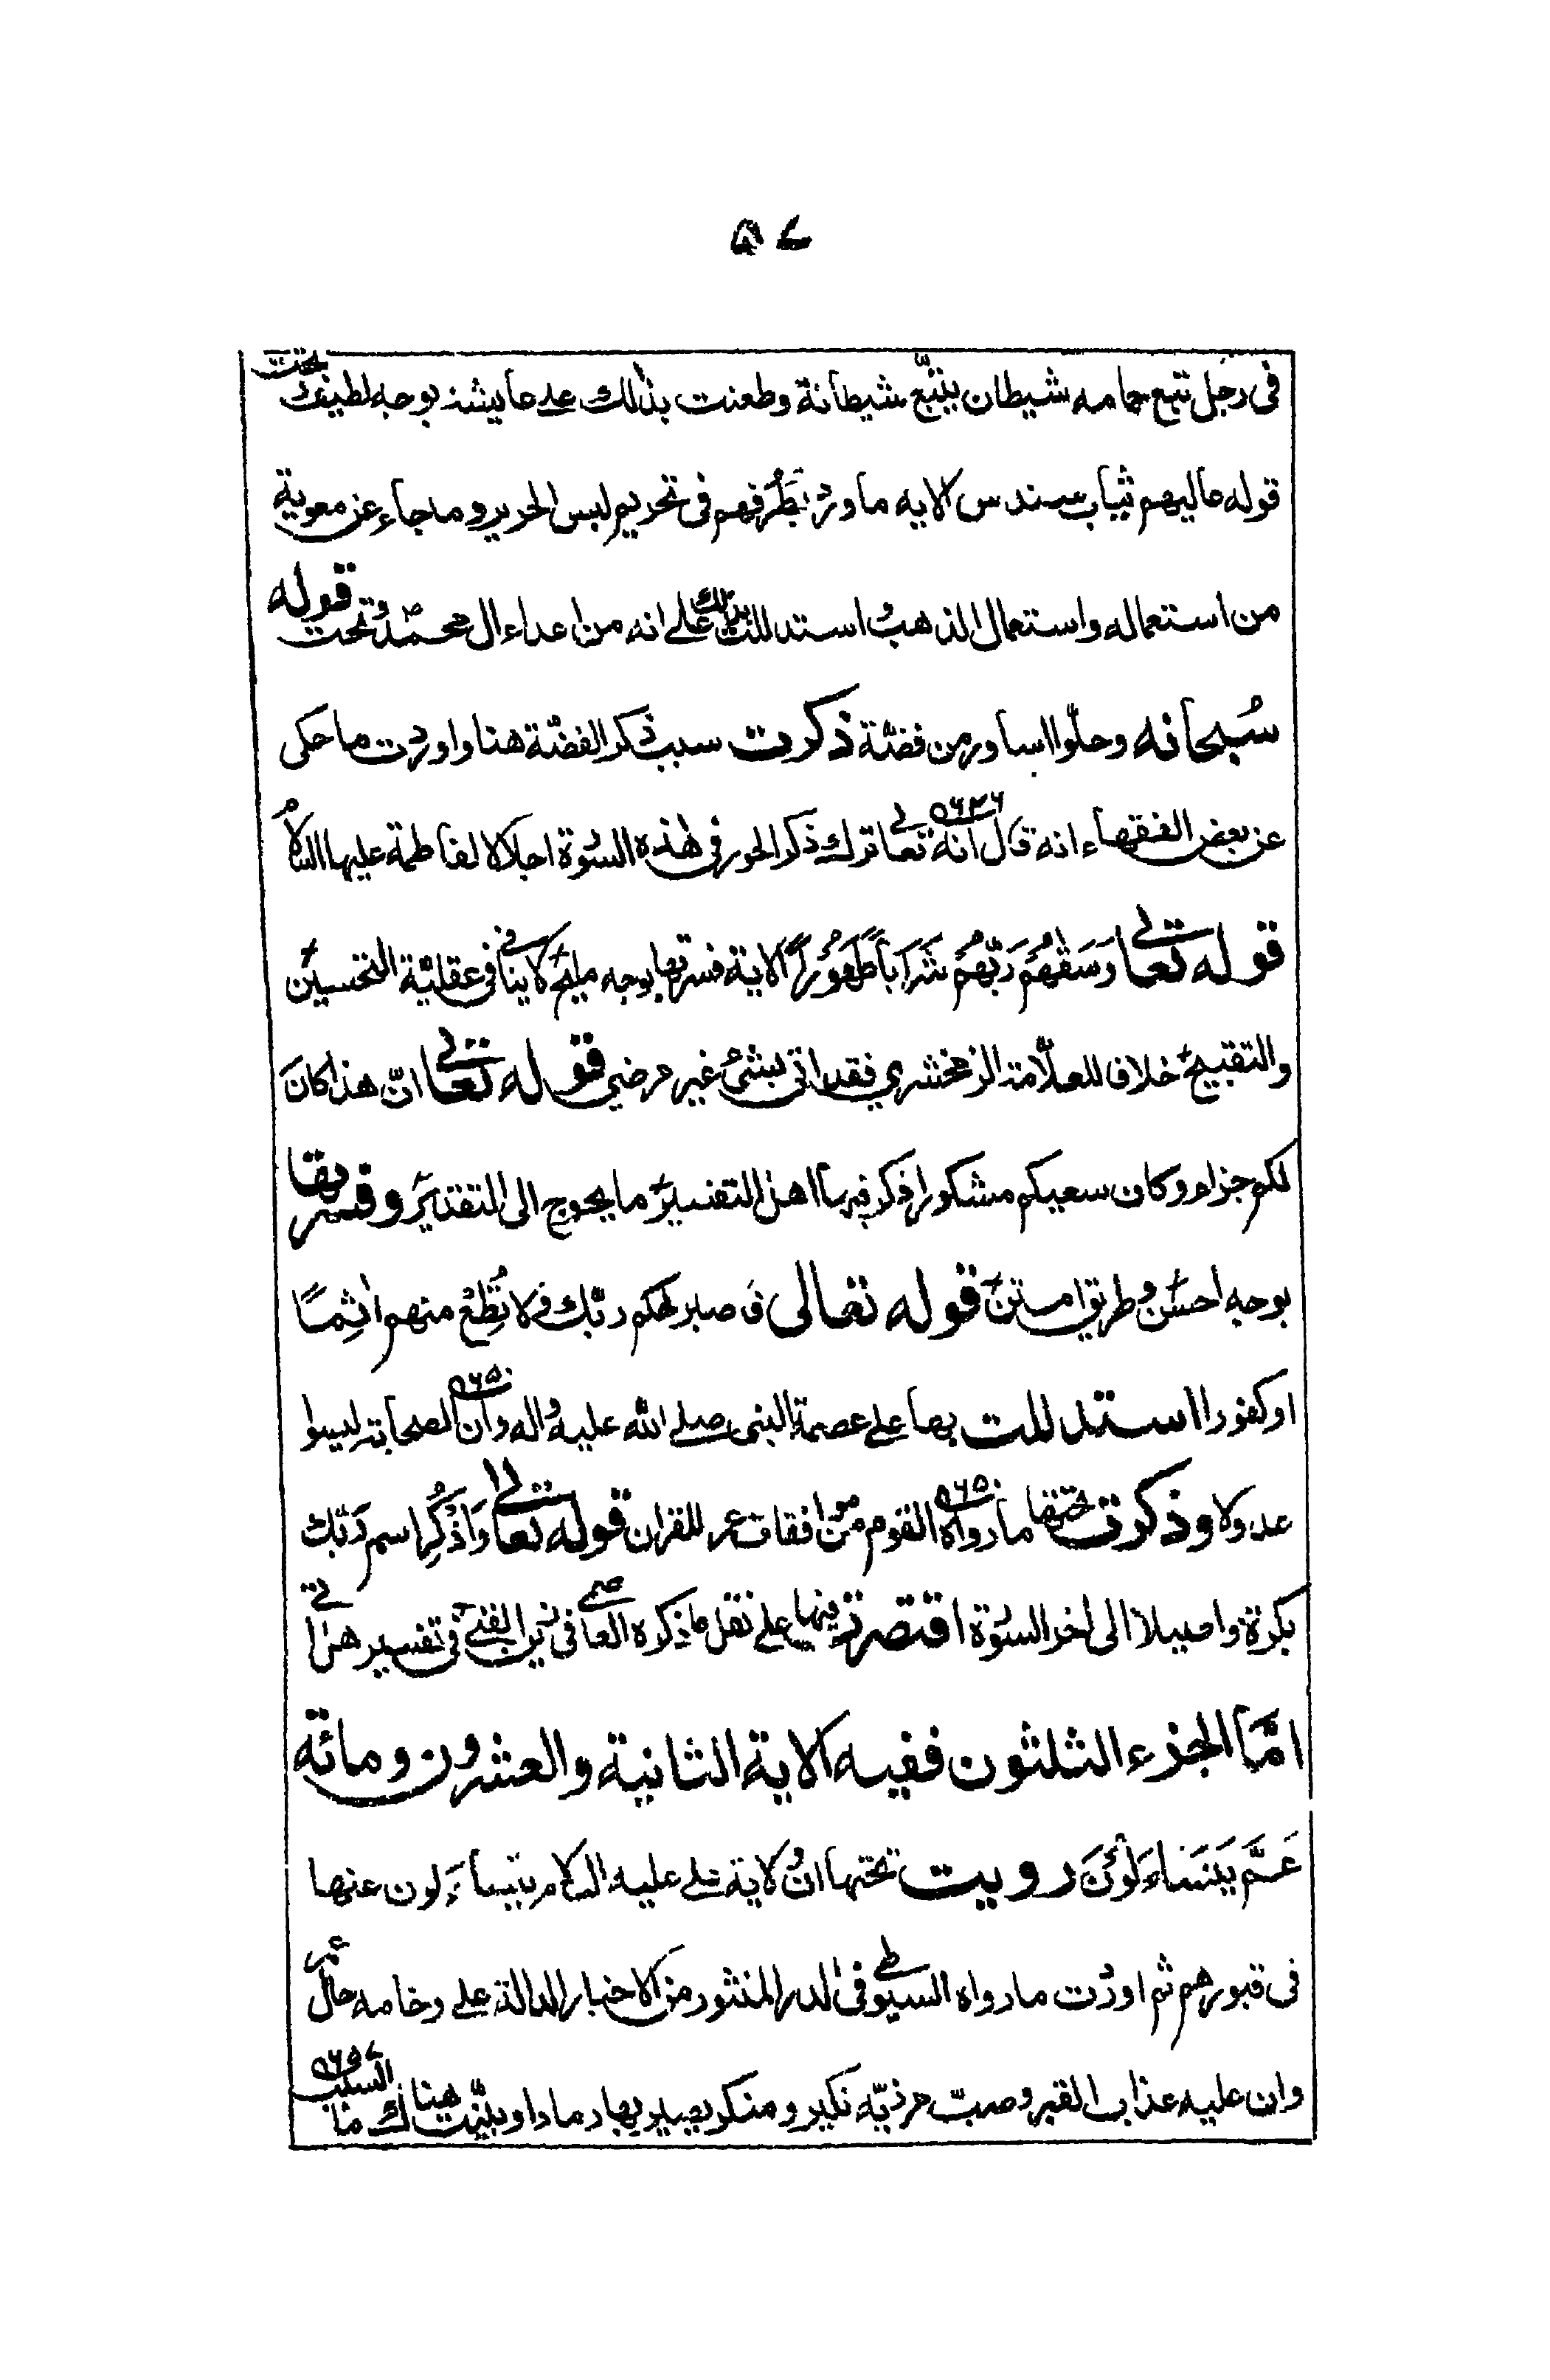 ٥٧
فى رجل تتبع حمامه شيطان يتبّع شيطانة وطعنت بذلك على عايشة بوجه لطيف وتحت
قوله عاليهم ثياب سندس الاية ما ورد بطرقهم فى تحريم لبس الحرير وما جاء عن معوية
من استعماله واستعمال الذهب واستدللت بذلك على انه من اعداء ال محمّد وتحت قوله
سُبحانه وحلّوا اساور من فضّة ذكرت سبب ذكر الفضّة هنا واوردت ما حكى
عن بعض الفقهاء انه قال انه تعالى ترك ذكر الحور فى هذه السّورة اجلالا لفاطمة عليها السّلام ٥٦٣٦
قوله تعالى وَسَقٰهُمْ رَبُّهُمْ شَرَاباً طَهُوراً الاية فسرتها بوجه مليح لا ينافى فى عقليّة التحسين
والتقبيح خلاف للعلّامة الزمخشري فقد اتى بشئ غير مرضي قوله تعالى انّ هذا كانَ
لكم جزاء وكان سعيكم مشكورا ذكر فيها اهل التفسير ما يحوج الى التقدير وفسرتها
بوجه احسن وطريق امتن قوله تعالى فاصبر لحكم ربّك ولا تُطِعْ منهم اٰثِمًا
او كفورا استدللت بها على عصمة النبى صلى الله عليه واله وان الصحابة ليسوا ٥٦٥٠
عدولا وذكرت تحتها ما رواه القوم من موافقات عمر للقران قوله تعالى وَاذْكُرِ اسم رَبّك ٥٦٥٠
بكرة واصيلا الى اخر السّورة اقتصرت فيها على نقل ما ذكره العاصمى فى زين الفتى فى تفسير هل اتى
امّا الجزء الثلثون ففيه الاية الثانية والعشرون ومائة
عَمَّ يَتَسَاءَلُوْنَ رويت تحتها انّ ولاية على عليه السلام يتساءَلون عنها
فى قبورهم ثم اوردت ما رواه السيوطى فى الدر المنثور من الاخبار الدالة على وخامه حال عمر
وان عليه عذاب القبر وصبّ مرذبّه نكير ومنكر يصير بها رمادا وبيّنت هنالك ما السبب ٥٦٥٧